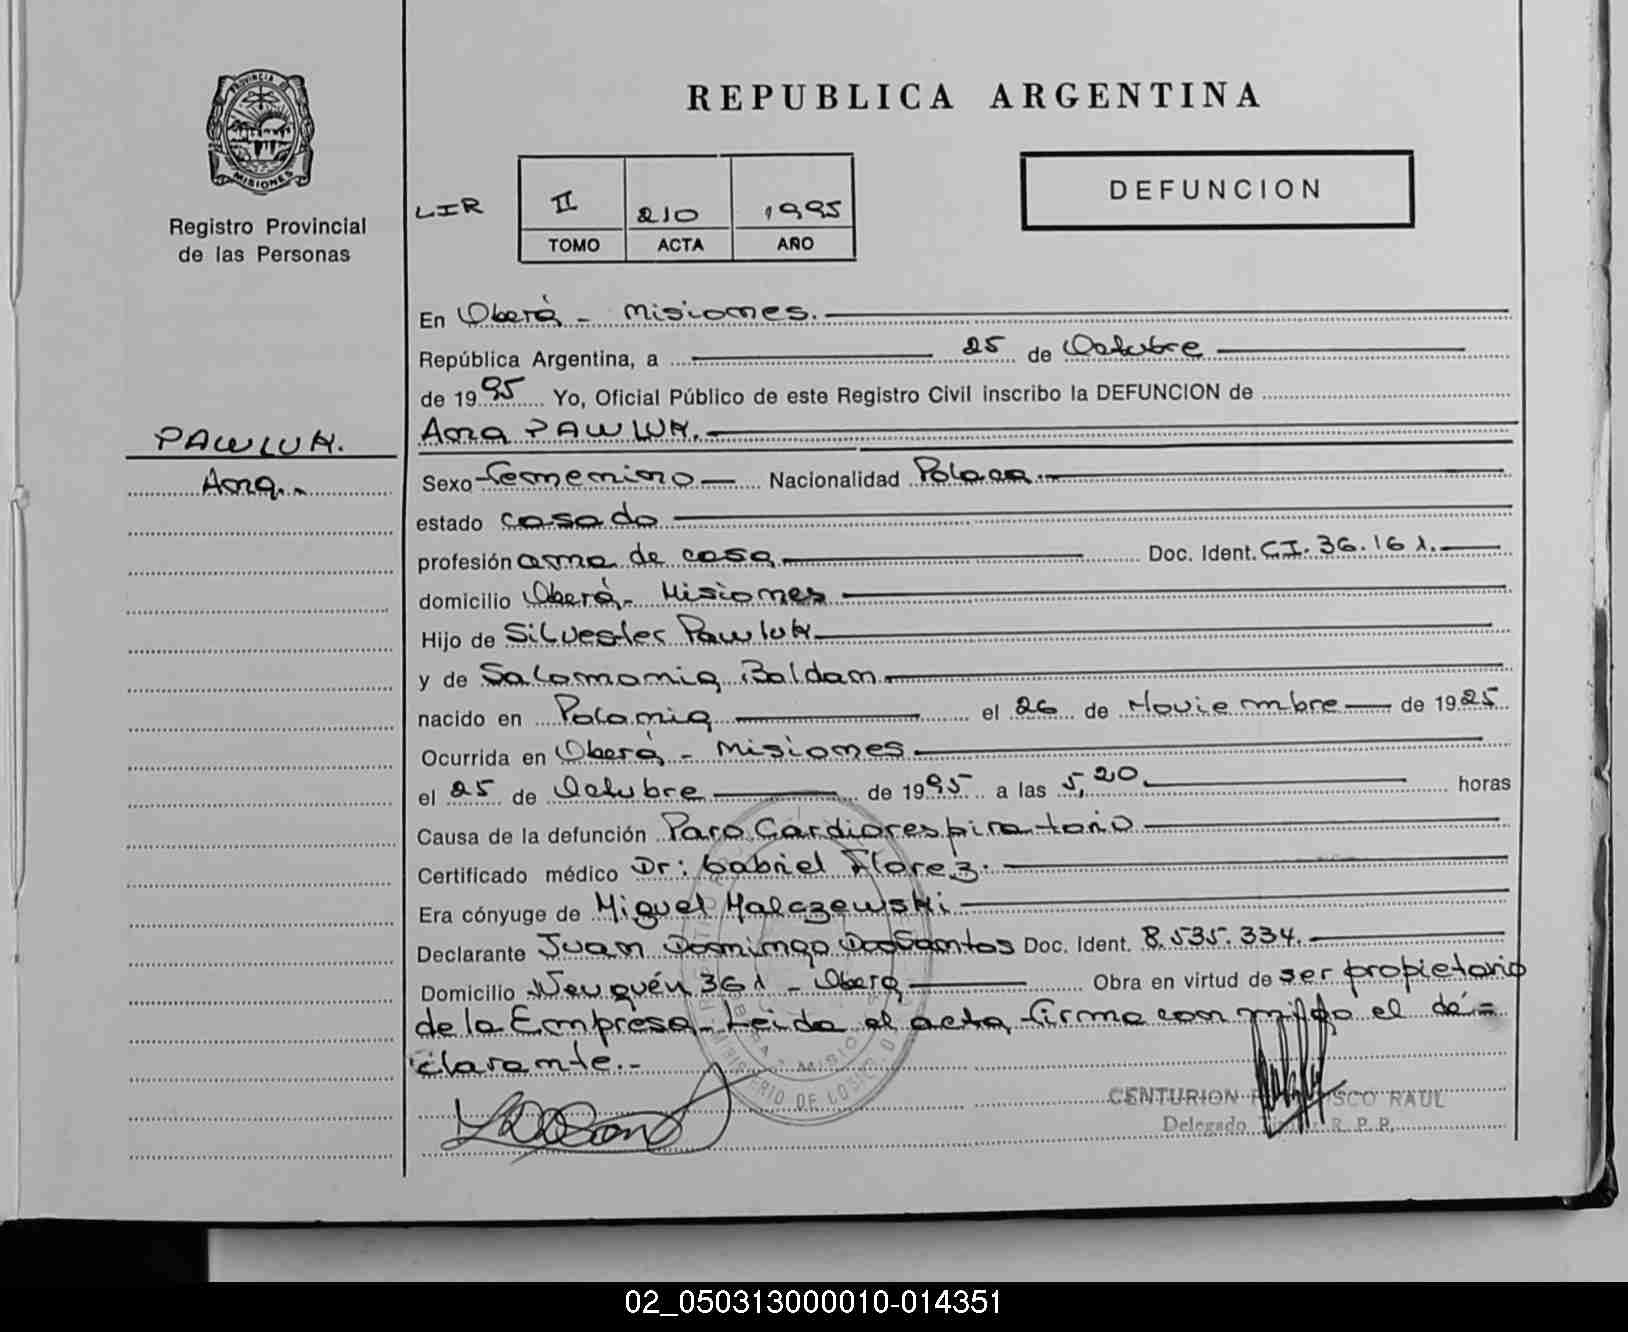 PROVINCIA DE
MISIONES
Registro Provincial
de las Personas
REPUBLICA ARGENTINA
DEFUNCION
LIR
II 210 1995
TOMO ACTA AÑO
En Oberá - Misiones.
República Argentina, a 25 de Octubre
de 1995 Yo, Oficial Público de este Registro Civil inscribo la DEFUNCION de
PAWLUK.
Ana PAWLUK.
Ana.-
Sexo femenino Nacionalidad Polaca.
estado casado
profesión ama de casa Doc. Ident. CI. 36.161.
domicilio Oberá - Misiones
Hijo de Silvester Pawluk
y de Salomonia Baldan
nacido en Polonia el 26 de Noviembre de 1925
Ocurrida en Oberá - Misiones
el 25 de Octubre de 1995 a las 5,20 horas
Causa de la defunción Paro Cardiorespiratorio
Certificado médico Dr: Gabriel Florez.
Era cónyuge de Miguel Malczewski
Declarante Juan Domingo DosSantos Doc. Ident. 8.535.334.
Domicilio Neuquén 361 - Oberá Obra en virtud de ser propietario
de la Empresa - Leida el acta firma con migo el de=
clarante.-
CENTURION SCO RAUL
Delegado R. P. P.
02_050313000010-014351